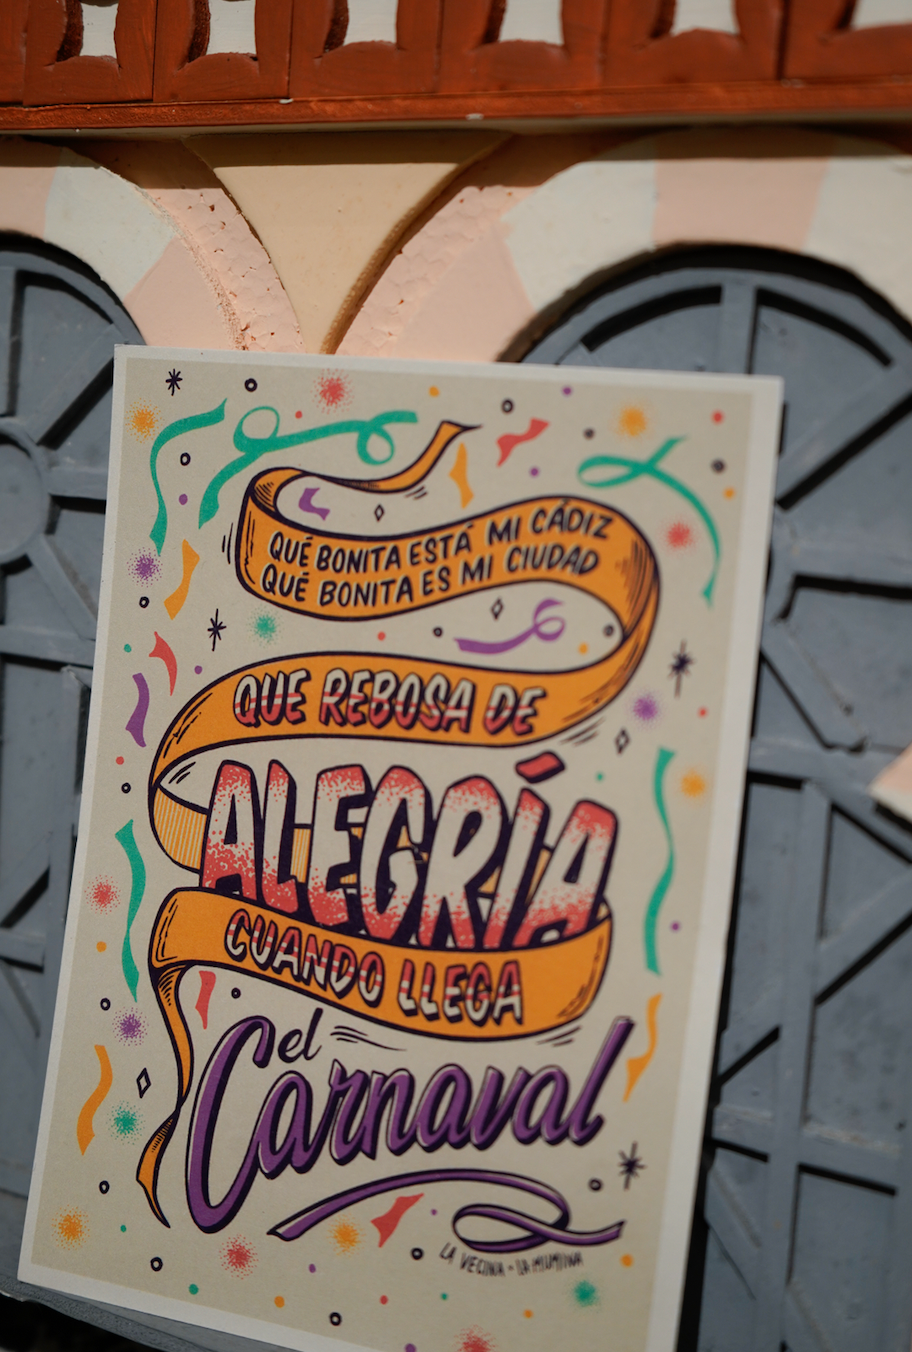 QUÉ BONITA ESTÁ MI CÁDIZ
QUÉ BONITA ES MI CIUDAD
QUE REBOSA DE
ALEGRÍA
CUANDO LLEGA
el
Carnaval
LA VECINA - LA MUMUA